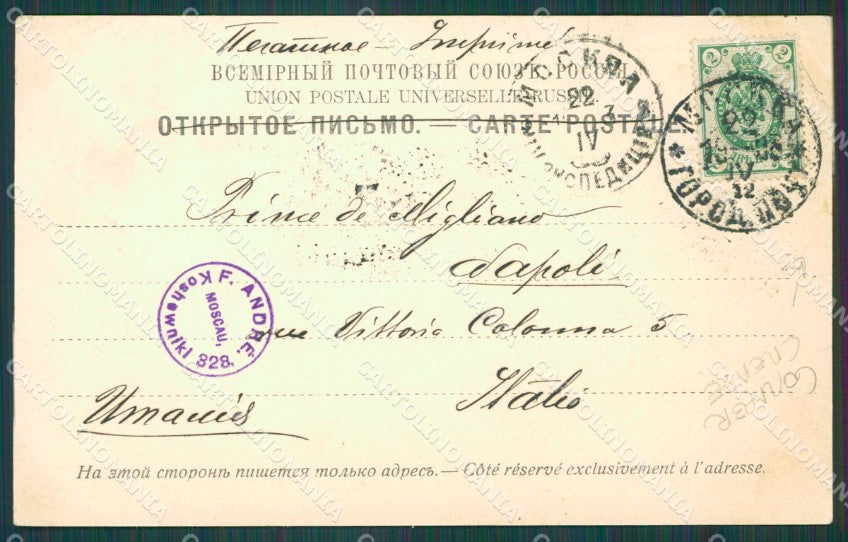 Печатное — Imprimé
ВСЕМІРНЫЙ ПОЧТОВЫЙ СОЮЗЪ. РОССІЯ.
UNION POSTALE UNIVERSELLE. RUSSIE.
ОТКРЫТОЕ ПИСЬМО. — CARTE POSTALE.
2 2
МОСКВА
22
IV
ЭКСПЕДИЦІЯ
МОСКВА
22
IV
12
ГОРОД. ПОЧТА
Prince de Migliano
Napoli
F. ANDRÉ.
MOSCAU,
Koshewniki 328.
rue Vittoria Colonna 5
Italie
Италія
На этой сторонѣ пишется только адресъ. — Côté réservé exclusivement à l'adresse.
CARTOLINOMANIA